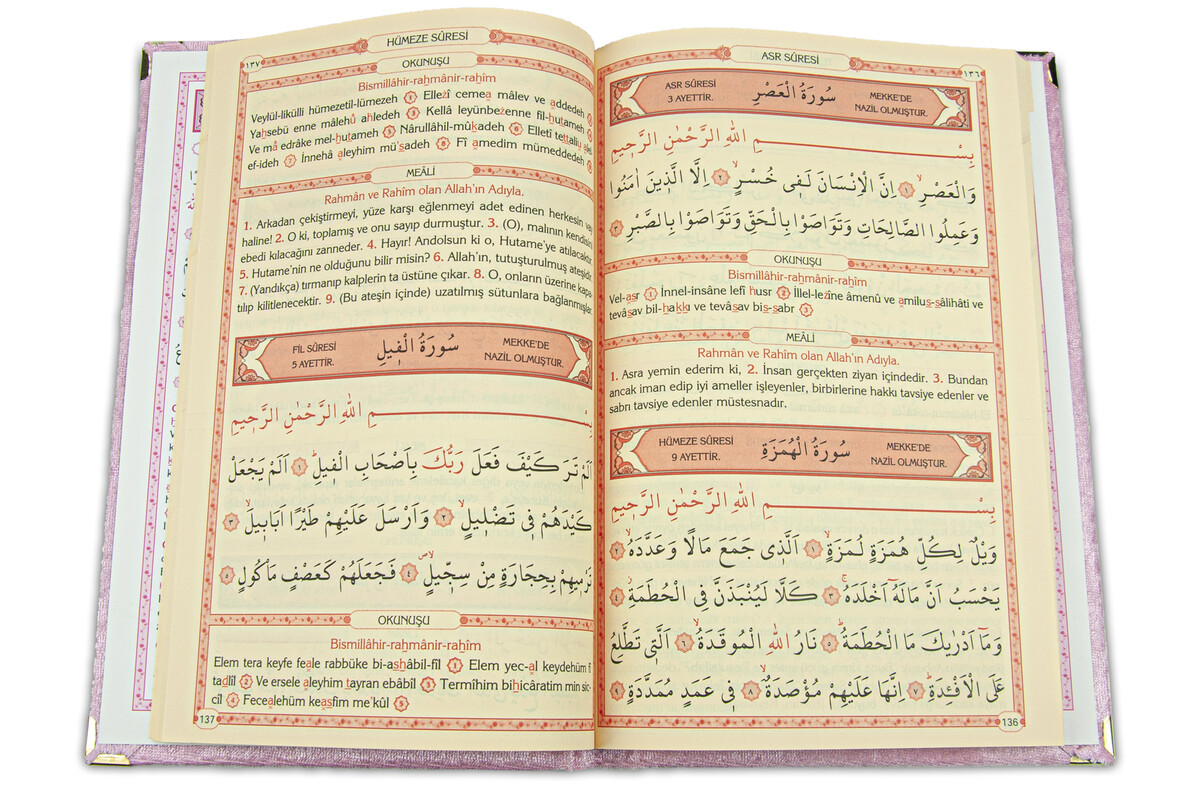 ASR SÛRESİ
١٣٦
ASR SÛRESİ
3 AYETTİR.
سُورَةُ الْعَصْرِ
MEKKE'DE
NAZİL OLMUŞTUR.
بِسْــــــــمِ اللهِ الرَّحْمٰنِ الرَّح۪يمِ
وَالْعَصْرِۙ ﴿١﴾ اِنَّ الْاِنْسَانَ لَف۪ي خُسْرٍۙ ﴿٢﴾ اِلَّا الَّذ۪ينَ اٰمَنُوا
وَعَمِلُوا الصَّالِحَاتِ وَتَوَاصَوْا بِالْحَقِّ وَتَوَاصَوْا بِالصَّبْرِ ﴿٣﴾
OKUNUŞU
Bismillâhir-raḥmânir-raḥîm
Vel-asr ① İnnel-insâne lefî ḣusr ② İllel-lezîne âmenû ve amiluṣ-sâlihâti ve
tevâsav bil-hakkı ve tevâsav bis-sabr ③
MEÂLİ
Rahmân ve Rahîm olan Allah'ın Adıyla.
1. Asra yemin ederim ki, 2. İnsan gerçekten ziyan içindedir. 3. Bundan
ancak iman edip iyi ameller işleyenler, birbirlerine hakkı tavsiye edenler ve
sabrı tavsiye edenler müstesnadır.
HÜMEZE SÛRESİ
9 AYETTİR.
سُورَةُ الْهُمَزَةِ
MEKKE'DE
NAZİL OLMUŞTUR.
بِسْــــــــمِ اللهِ الرَّحْمٰنِ الرَّح۪يمِ
وَيْلٌ لِكُلِّ هُمَزَةٍ لُمَزَةٍۙ ﴿١﴾ اَلَّذ۪ي جَمَعَ مَالًا وَعَدَّدَهُۙ ﴿٢﴾
يَحْسَبُ اَنَّ مَالَهُٓ اَخْلَدَهُۚ ﴿٣﴾ كَلَّا لَيُنْبَذَنَّ فِي الْحُطَمَةِۘ ﴿٤﴾
وَمَٓا اَدْرٰيكَ مَا الْحُطَمَةُۜ ﴿٥﴾ نَارُ اللهِ الْمُوقَدَةُۙ ﴿٦﴾ اَلَّت۪ي تَطَّلِعُ
عَلَى الْاَفْـِٔدَةِۜ ﴿٧﴾ اِنَّهَا عَلَيْهِمْ مُؤْصَدَةٌۙ ﴿٨﴾ ف۪ي عَمَدٍ مُمَدَّدَةٍ ﴿٩﴾
136
HÜMEZE SÛRESİ
١٣٧
OKUNUŞU
Bismillâhir-raḥmânir-raḥîm
Veylül-likülli hümezetil-lümezeh ① Ellezî cemea mâlev ve addedeh ②
Yahsebü enne mâlehû ahledeh ③ Kellâ leyünbezenne fil-hutameh ④
Ve mâ edrâke mel-hutameh ⑤ Nârullâhil-mûkadeh ⑥ Elletî tettaliu alel
ef-ideh ⑦ İnnehâ aleyhim mü'sadeh ⑧ Fî amedim mümeddedeh ⑨
MEÂLİ
Rahmân ve Rahîm olan Allah'ın Adıyla.
1. Arkadan çekiştirmeyi, yüze karşı eğlenmeyi adet edinen herkesin vay
haline! 2. O ki, toplamış ve onu sayıp durmuştur. 3. (O), malının kendisini
ebedi kılacağını zanneder. 4. Hayır! Andolsun ki o, Hutame'ye atılacaktır.
5. Hutame'nin ne olduğunu bilir misin? 6. Allah'ın, tutuşturulmuş ateşidir.
7. (Yandıkça) tırmanıp kalplerin ta üstüne çıkar. 8. O, onların üzerine kapa-
tılıp kilitlenecektir. 9. (Bu ateşin içinde) uzatılmış sütunlara bağlanmışlar
FİL SÛRESİ
5 AYETTİR.
سُورَةُ الْف۪يلِ
MEKKE'DE
NAZİL OLMUŞTUR.
بِسْــــــــمِ اللهِ الرَّحْمٰنِ الرَّح۪يمِ
اَلَمْ تَرَ كَيْفَ فَعَلَ رَبُّكَ بِاَصْحَابِ الْف۪يلِۜ ﴿١﴾ اَلَمْ يَجْعَلْ
كَيْدَهُمْ ف۪ي تَضْل۪يلٍۙ ﴿٢﴾ وَاَرْسَلَ عَلَيْهِمْ طَيْرًا اَبَاب۪يلَۙ ﴿٣﴾
تَرْم۪يهِمْ بِحِجَارَةٍ مِنْ سِجّ۪يلٍۙۖ ﴿٤﴾ فَجَعَلَهُمْ كَعَصْفٍ مَأْكُولٍ ﴿٥﴾
OKUNUŞU
Bismillâhir-raḥmânir-raḥîm
Elem tera keyfe feale rabbüke bi-ashâbil-fîl ① Elem yec-al keydehüm fî
tadlîl ② Ve ersele aleyhim tayran ebâbîl ③ Termîhim bihicâratim min sic-
cîl ④ Fecealehüm keasfim me'kûl ⑤
137